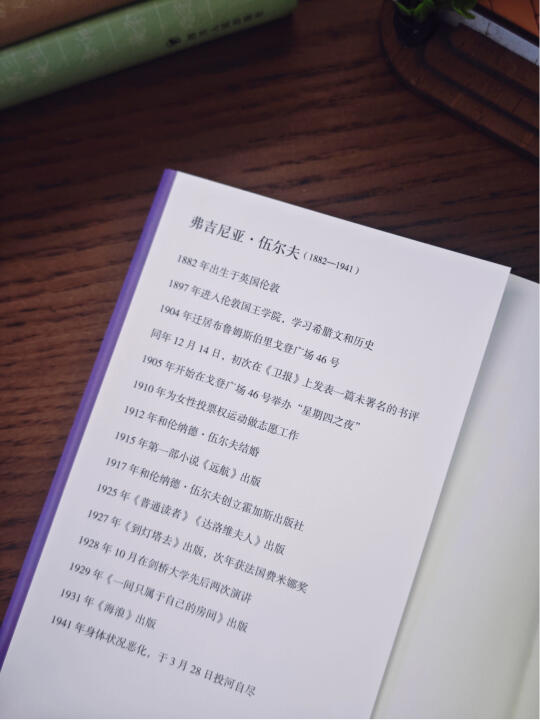 弗吉尼亚·伍尔夫（1882—1941）
1882 年出生于英国伦敦
1897 年进入伦敦国王学院，学习希腊文和历史
1904 年迁居布鲁姆斯伯里戈登广场 46 号
同年 12 月 14 日，初次在《卫报》上发表一篇未署名的书评
1905 年开始在戈登广场 46 号举办“星期四之夜”
1910 年为女性投票权运动做志愿工作
1912 年和伦纳德·伍尔夫结婚
1915 年第一部小说《远航》出版
1917 年和伦纳德·伍尔夫创立霍加斯出版社
1925 年《普通读者》《达洛维夫人》出版
1927 年《到灯塔去》出版，次年获法国费米娜奖
1928 年 10 月在剑桥大学先后两次演讲
1929 年《一间只属于自己的房间》出版
1931 年《海浪》出版
1941 年身体状况恶化，于 3 月 28 日投河自尽